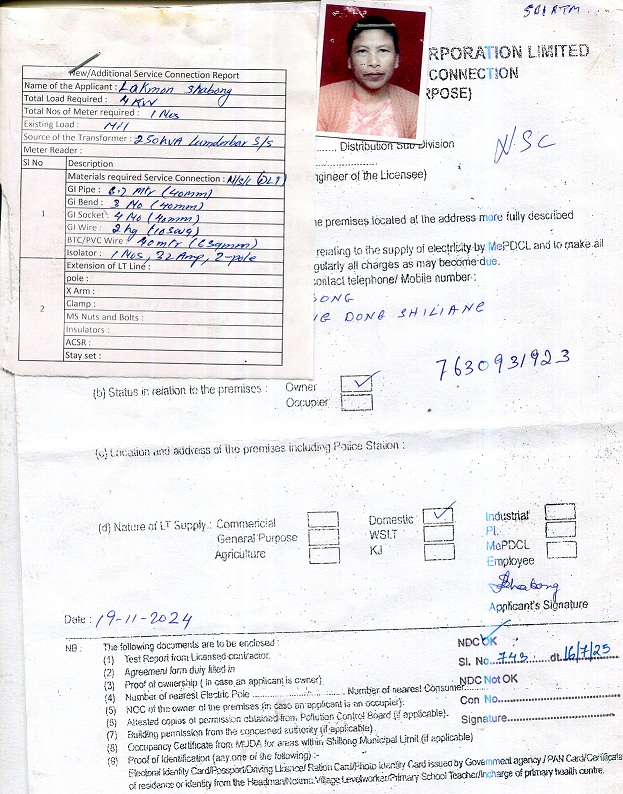 RPORATION LIMITED
CONNECTION
RPOSE)
N.S.C
New/Additional Service Connection Report
Name of the Applicant : Lakmon Shabong
Total Load Required : 4 KW
Total Nos of Meter required : 1 Nos
Existing Load : Nil
Source of the Transformer : 250KVA Lumderbar S/s
Meter Reader :
Sl No Description
1
Materials required Service Connection : N/S/C (DLT)
GI Pipe : 6.7 Mtr (40mm)
GI Bend : 3 No (40mm)
GI Socket : 4 No (40mm)
GI Wire : 2 kg (10swg)
BTC/PVC Wire : 40mtr (6sqmm)
Isolator : 1 Nos, 32 Amp, 2-pole
2
Extension of LT Line :
pole :
X Arm :
Clamp :
MS Nuts and Bolts :
Insulators :
ACSR :
Stay set :
Distribution Sub Division
ngineer of the Licensee)
he premises located at the address more fully described
relating to the supply of electricity by MePDCL and to make all
gularly all charges as may become due.
contact telephone/ Mobile number :
BONG
DONG SHILIANG
7630931923
(b) Status in relation to the premises : Owner
Occupier
(c) Location and address of the premises including Police Station :
(d) Nature of LT Supply : Commercial Domestic Industrial
General Purpose WSLT PL
Agriculture KJ MePDCL
Employee
Shabong
Applicant's Signature
Date : 19-11-2024
NB : The following documents are to be enclosed :
(1) Test Report from Licensed contractor.
(2) Agreement form duly filled in
(3) Proof of ownership ( in case an applicant is owner)
(4) Number of nearest Electric Pole ........................ Number of nearest Consumer
(5) NOC of the owner of the premises (in case an applicant is an occupier).
(6) Attested copies of permission obtained from Pollution Control Board (if applicable).
(7) Building permission from the concerned authority (if applicable)
(8) Occupancy Certificate from MUDA for areas within Shillong Municipal Limit (if applicable)
(9) Proof of Identification (any one of the following) :-
Electoral Identity Card/Passport/Driving Licence/ Ration Card/Photo Identity Card issued by Government agency / PAN Card/Certificate
of residence or identity from the Headman/Nokma/Village Levelworker/Primary School Teacher/Incharge of primary health centre.
NDC OK
Sl. No. 743 dt. 16/7/25
NDC Not OK
Con No
Signature